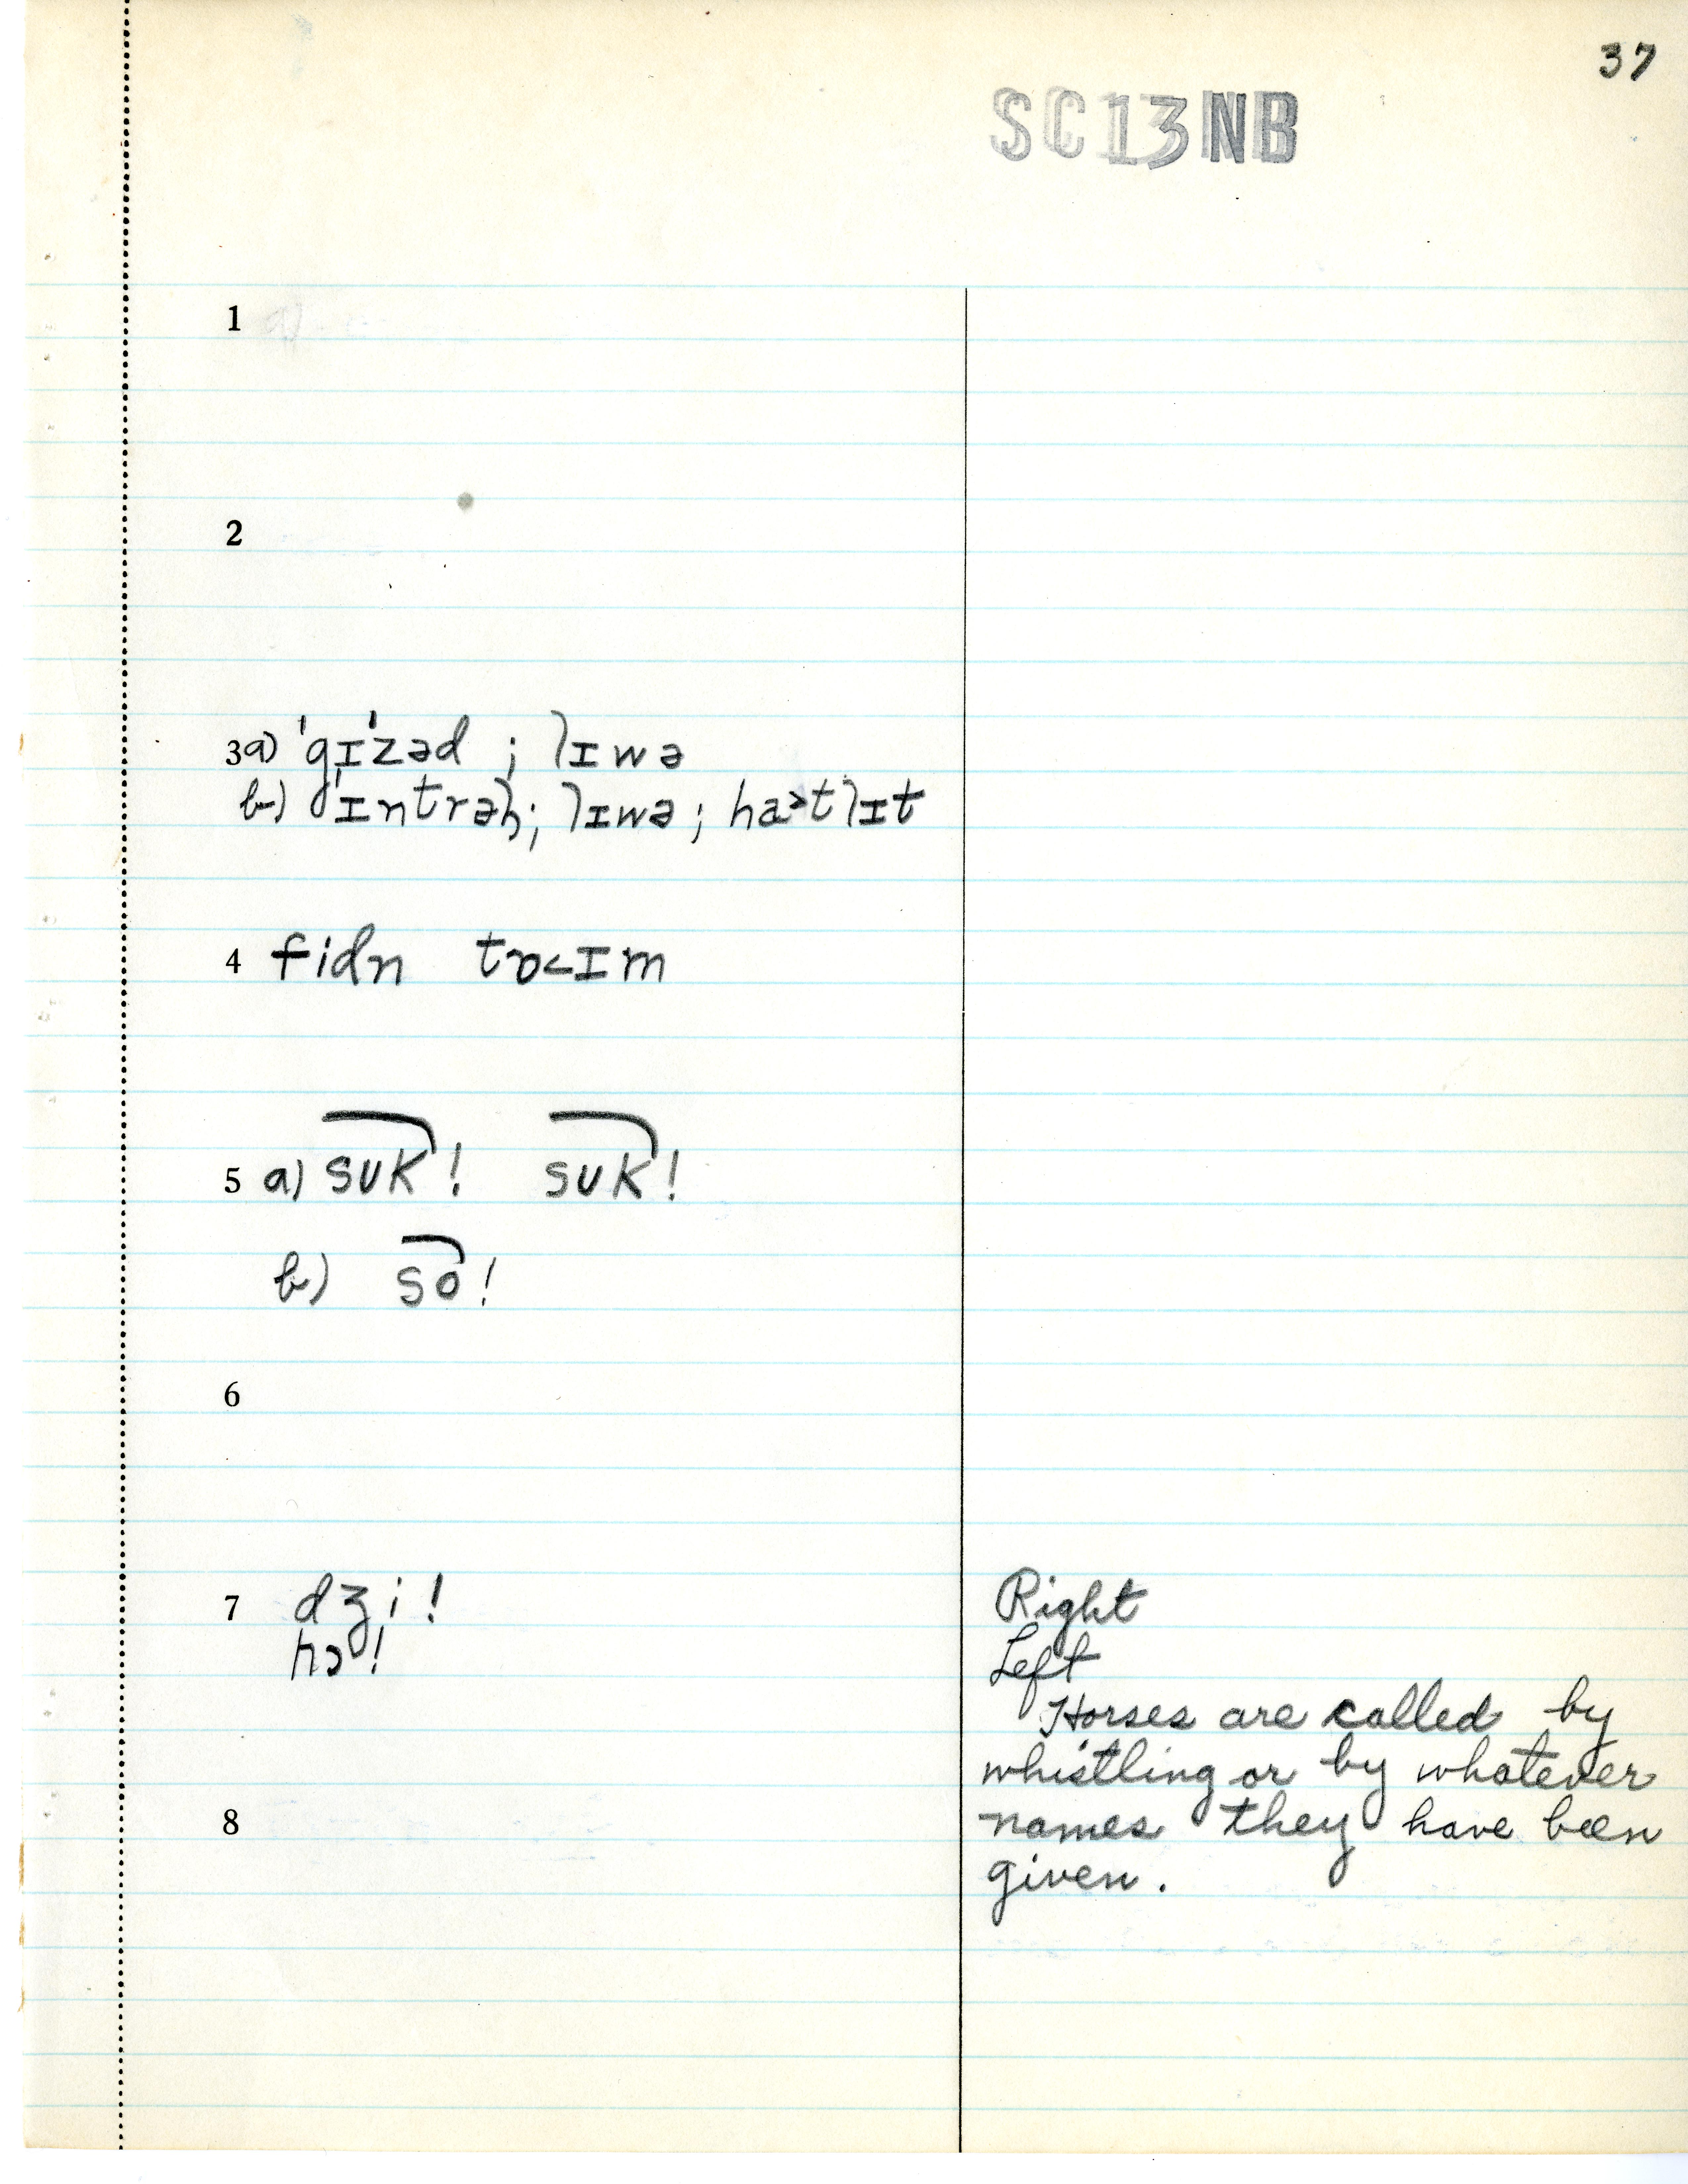 37
SC13NB
1
2
3 a) 'gɪ'zəd ; lɪwə
b) 'ɪntrəlz; lɪwə; ha>tlɪt
4 fidn tɒ<ɪm
5 a) sʊk! sʊk!
b) so!
6
7 dʒi! Right
hɔ! Left
Horses are called by
whistling or by whatever
8 names they have been
given.